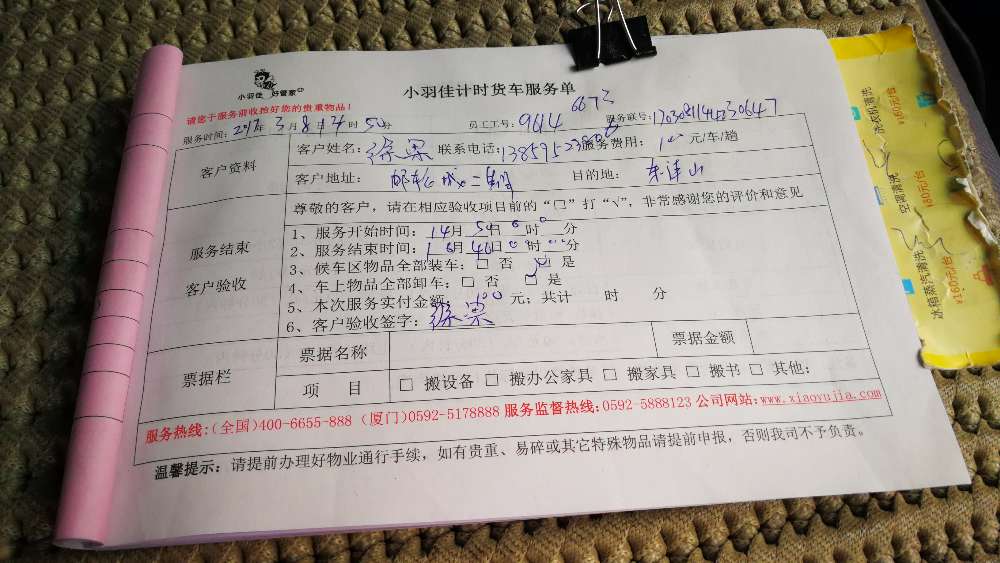 小羽佳 好管家
小羽佳计时货车服务单
请您于服务前收拾好您的贵重物品!
6673
服务时间:2017年3月8日14时50分 员工工号:9614 服务联号:
客户资料
客户姓名:徐果 联系电话: 服务费用:100元/车/趟
客户地址: 目的地:东连山
服务结束
客户验收
尊敬的客户,请在相应验收项目前的“□”打“√”,非常感谢您的评价和意见
1、服务开始时间:14月50日0时0分
2、服务结束时间:16月40日0时分
3、候车区物品全部装车:□ 否 ☑ 是
4、车上物品全部卸车:□ 否 □ 是
5、本次服务实付金额:100元;共计 时 分
6、客户验收签字:徐果
票据栏
票据名称 票据金额
项 目 □ 搬设备 □ 搬办公家具 □ 搬家具 □ 搬书 □ 其他:
服务热线:(全国)400-6655-888 (厦门)0592-5178888 服务监督热线:0592-5888123 公司网站:www.xiaoyujia.com
温馨提示:请提前办理好物业通行手续,如有贵重、易碎或其它特殊物品请提前申报,否则我司不予负责。
洗衣机清洗
¥180元/台
空调清洗
¥80元/台
冰箱蒸汽清洗
¥160元/台